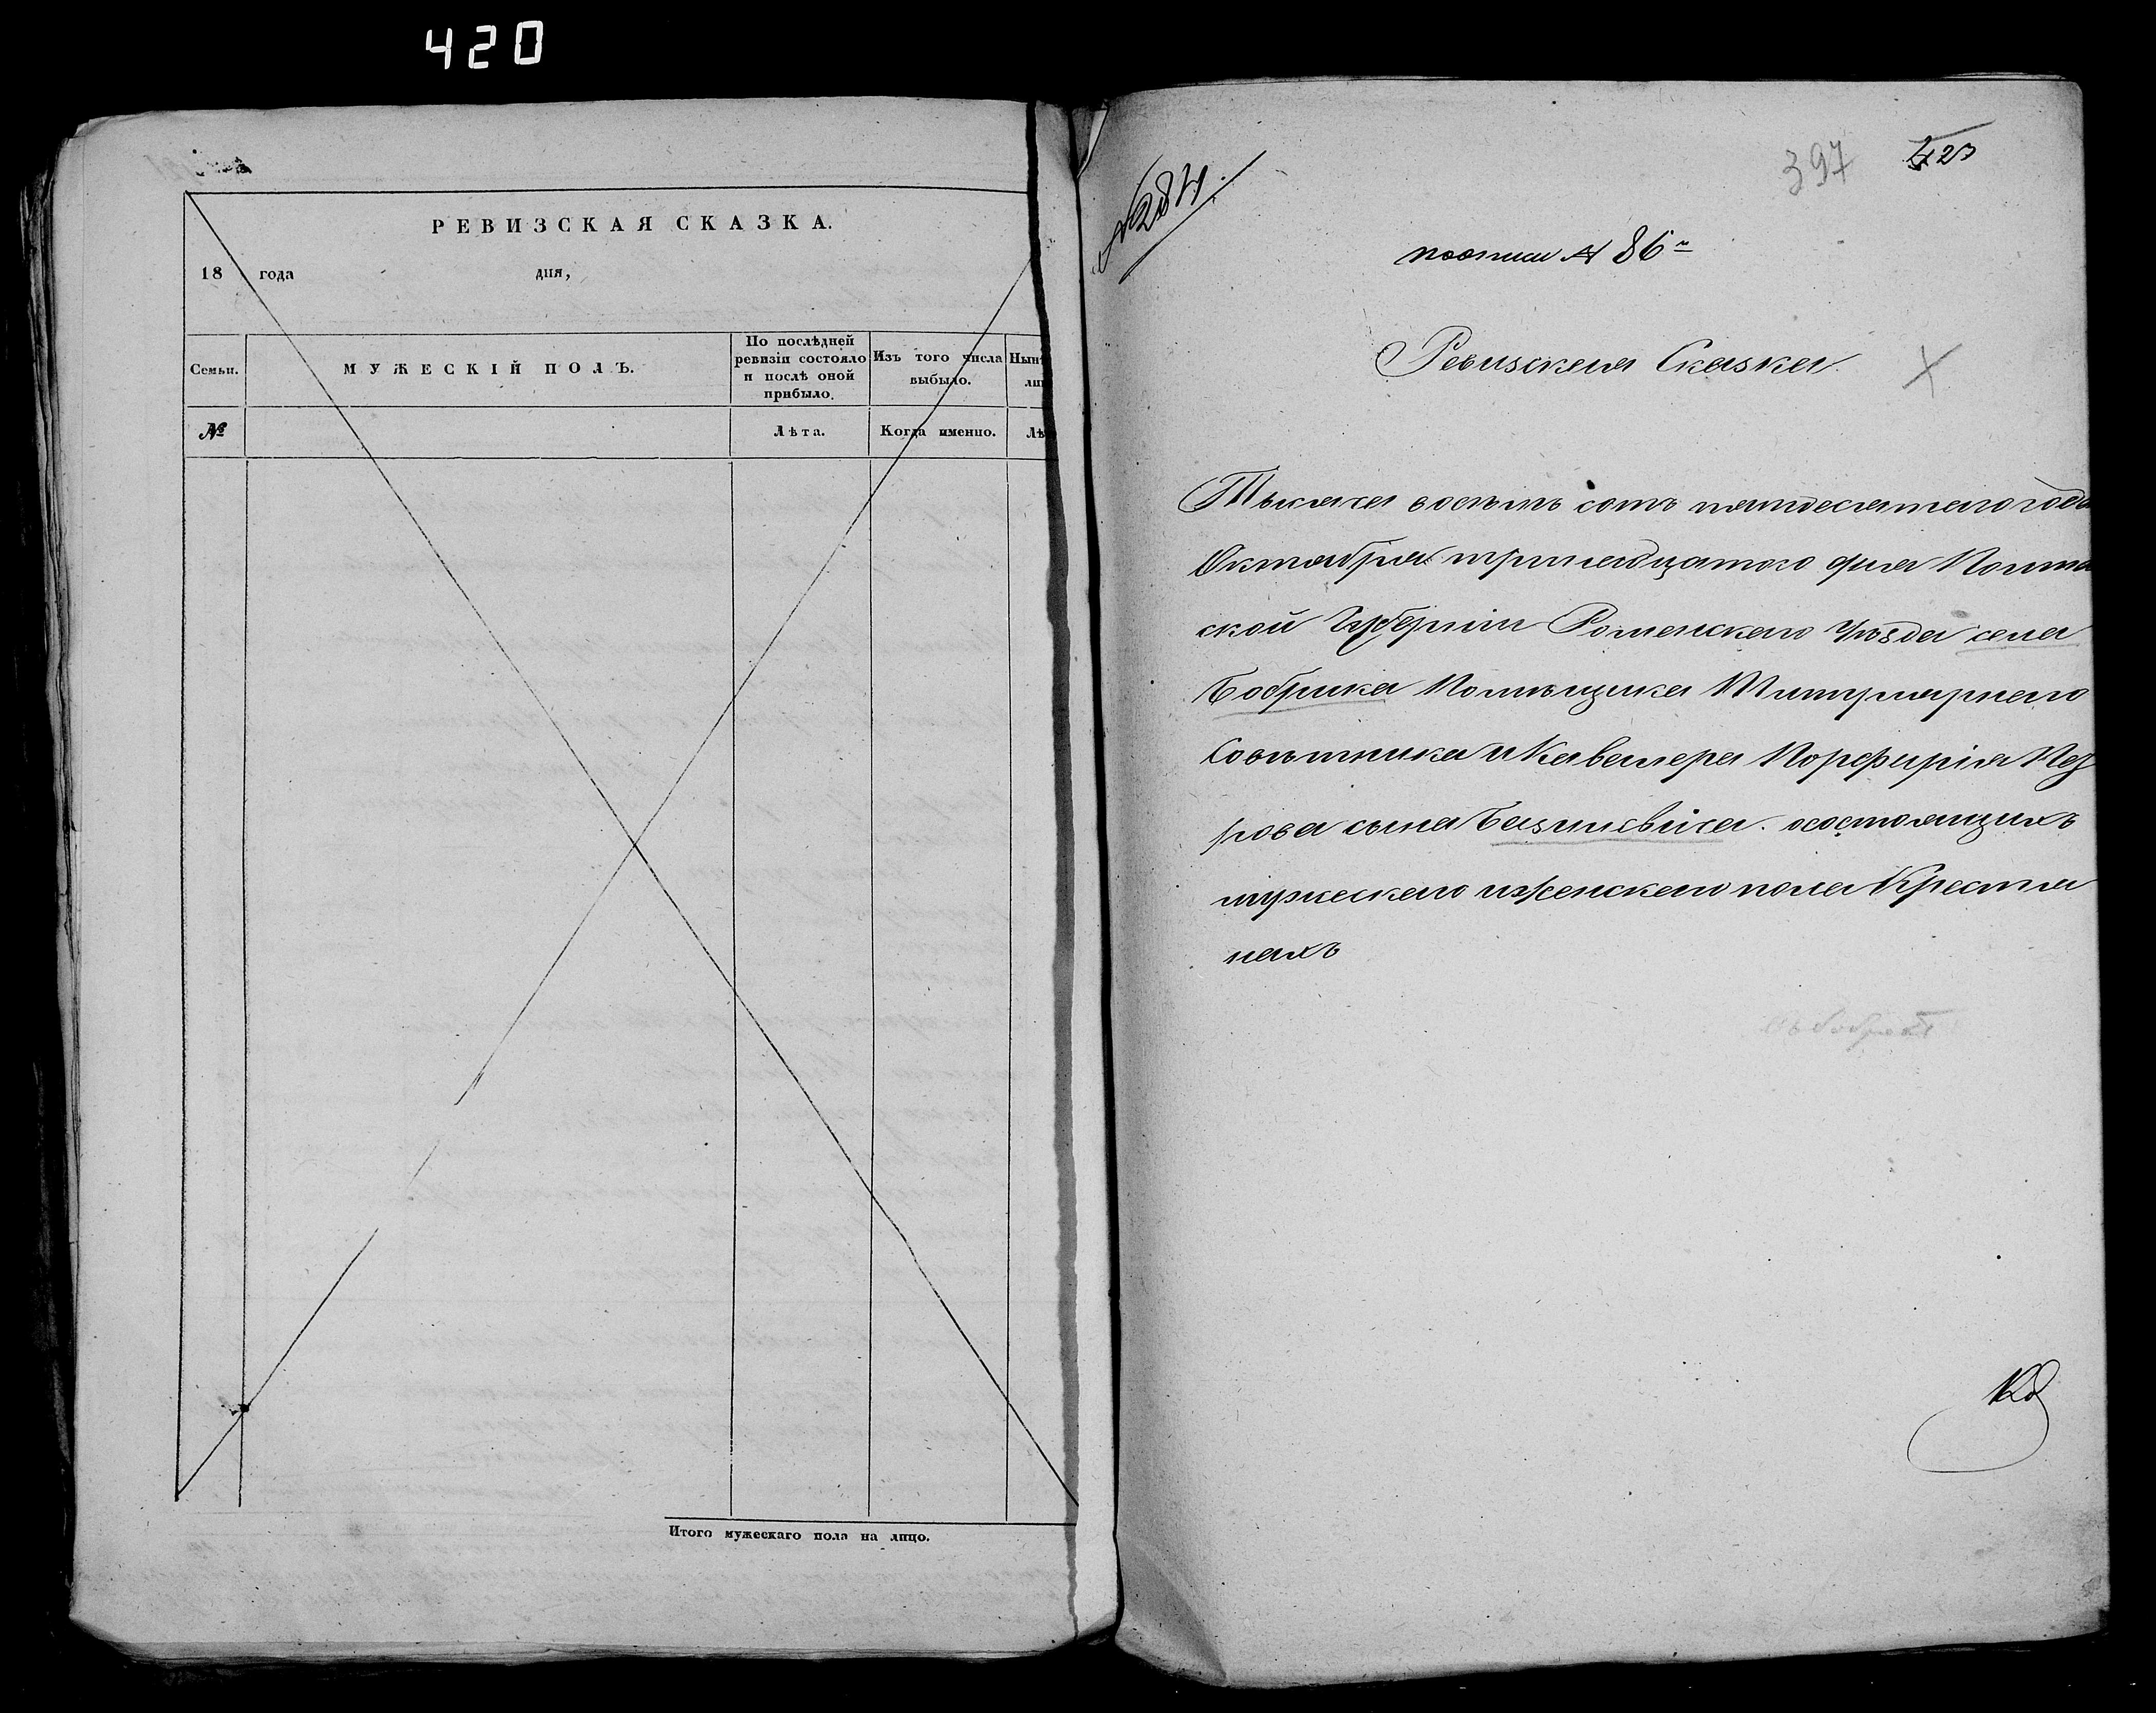 420
РЕВИЗСКАЯ СКАЗКА.
18 года дня,
Семьи.
МУЖЕСКІЙ ПОЛЪ.
По послѣдней
ревизіи состояло
и послѣ оной
прибыло.
Изъ того числа
выбыло.
Нын
ли
№
Лѣта.
Когда именно.
Лѣ
Итого мужескаго пола на лицо.
№ 284.
397 423
по описи № 86й
Ревизская Сказка
Тысяча восѣмъ сотъ пятдесятаго года
Октября тринадцатого дня Полтав
ской Губерніи Роменскаго Уѣзда села
Бобрика Помѣщика Титулярнаго
Совѣтника и Кавалера Порфирія Пет
рова сына Базилевича. о состоящихъ
мужескаго и женскаго пола Крестья
нахъ